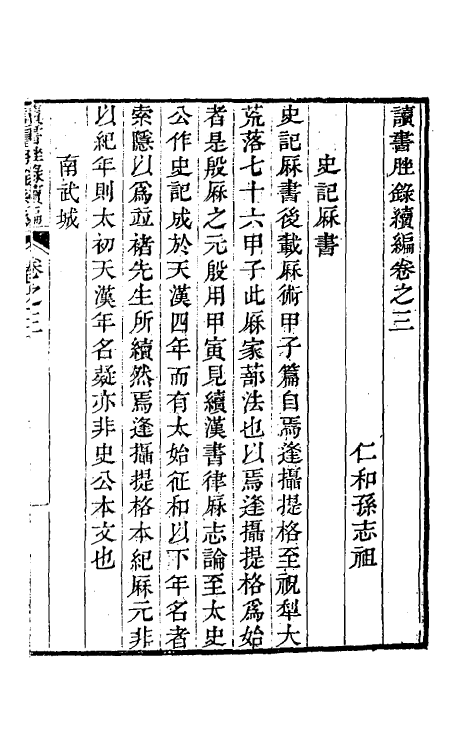 讀書脞錄續編卷之三
仁和孫志祖
史記厤書
史記厤書後載厤術甲子篇自焉逢攝提格至祝犁大
荒落七十六甲子此厤家蔀法也以焉逢攝提格爲始
者是殷厤之元殷用甲寅見續漢書律厤志論至太史
公作史記成於天漢四年而有太始征和以下年名者
索隱以爲竝褚先生所續然焉逢攝提格本紀厤元非
以紀年則太初天漢年名疑亦非史公本文也
南武城
讀書脞錄續編
卷之三